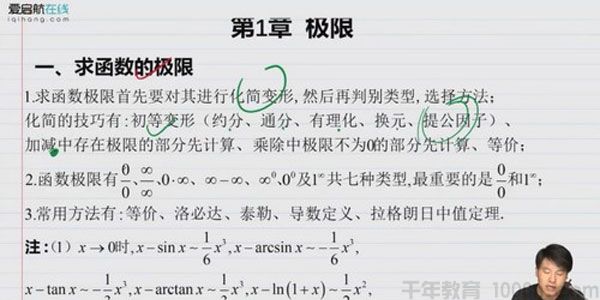 爱启航在线
iqihang.com
第1章 极限
一、求函数的极限
1.求函数极限首先要对其进行化简变形,然后再判别类型,选择方法;
化简的技巧有:初等变形(约分、通分、有理化、换元、提公因子)、
加减中存在极限的部分先计算、乘除中极限不为0的部分先计算、等价;
2.函数极限有0/0、∞/∞、0·∞、∞−∞、∞⁰、0⁰及1^∞共七种类型,最重要的是0/0和1^∞;
3.常用方法有:等价、洛必达、泰勒、导数定义、拉格朗日中值定理.
注:(1) x→0时, x−sin x ~ 1/6 x³, x−arcsin x ~ −1/6 x³,
x−tan x ~ −1/3 x³, x−arctan x ~ 1/3 x³, x−ln(1+x) ~ 1/2 x²,
千年教育